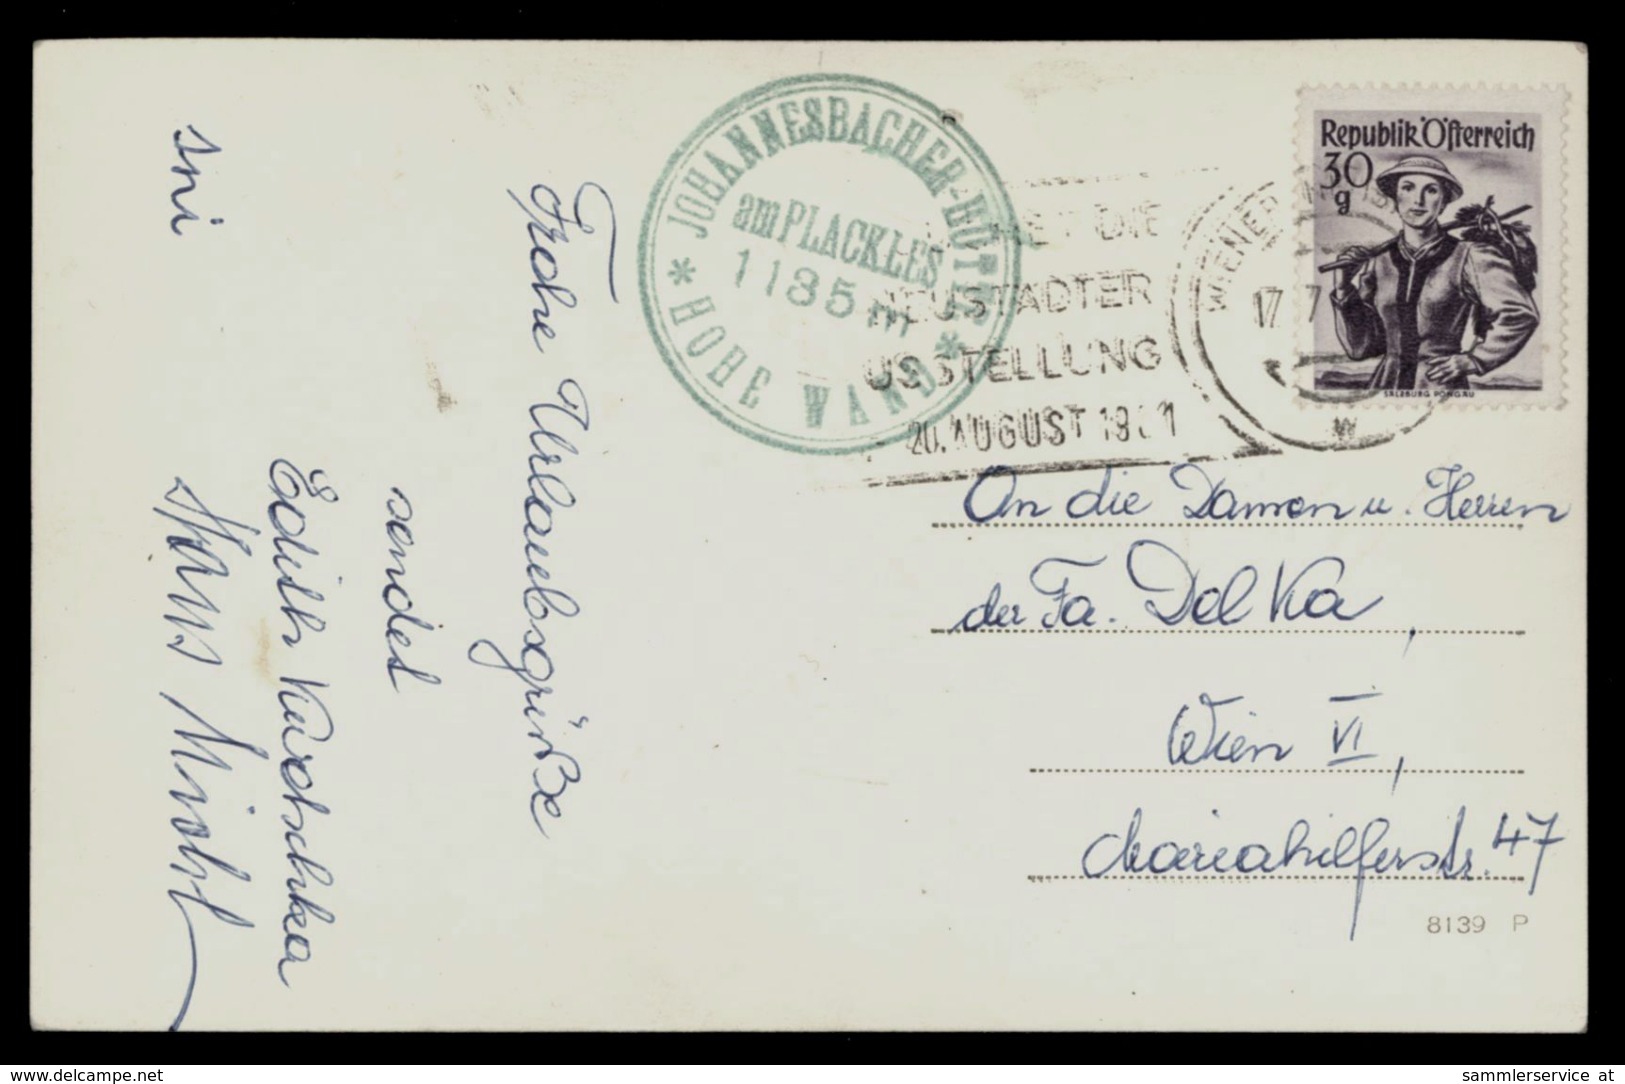 Frohe Urlaubsgrüße
sendet
Edith Kurdschka
Hans
JOHANNESBACHER-HÜTTE
am PLACKLES
1135 m
* HOHE WAND *
DIE
NEUSTÄDTER
USSTELLUNG
20. AUGUST 19
WIENER
17. 7
w
Republik Österreich
30
g
SALZBURG PONGAU
An die Damen u. Herren
der Fa. Delka,
Wien VI,
Mariahilferstr. 47
8139 P
www.delcampe.net
sammlerservice at